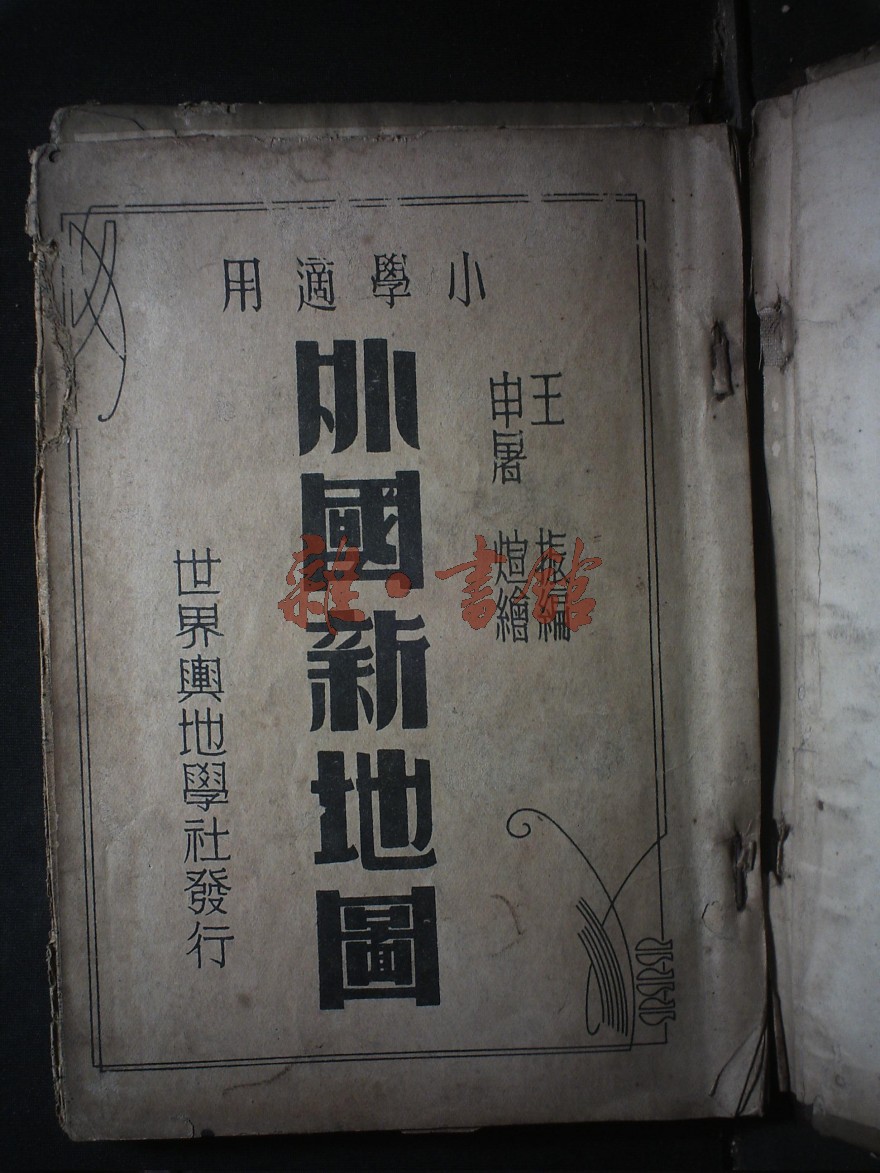 小學適用
王　振編
申屠　煊繪
外國新地圖
世界輿地學社發行
雜·書館